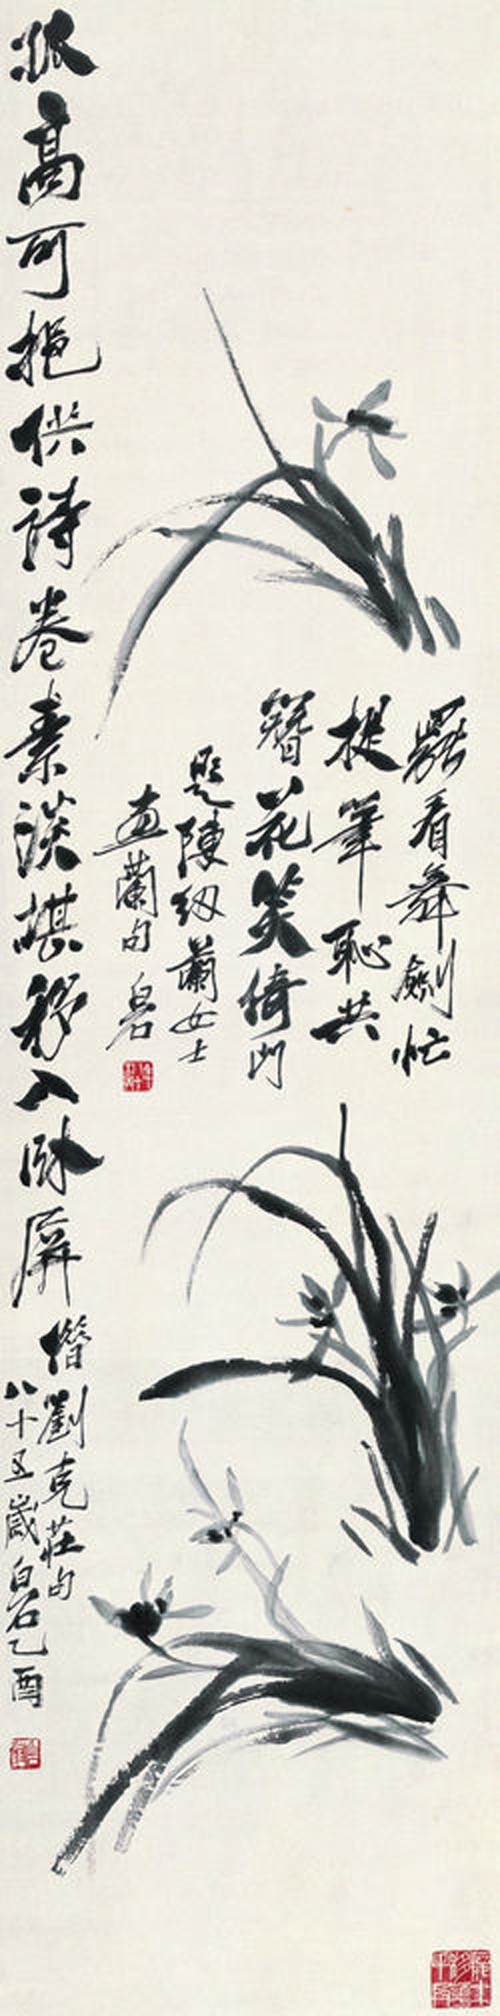 罷看舞劍忙
提筆恥共
簪花笑倚門
題陳紉蘭女士
畫蘭句 白石
孤高可挹供詩卷素淡堪移入卧屏
借劉克莊句
八十五歲白石乙酉